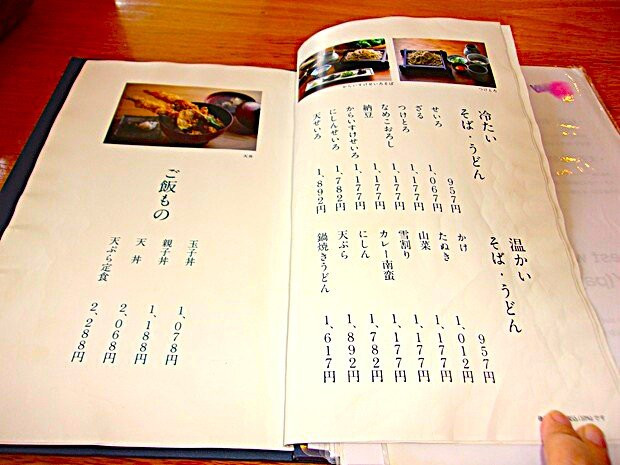 からいすけせいろそば
つけとろ
冷たい
そば・うどん
せいろ 957円
ざる 1,067円
つけとろ 1,177円
なめこおろし 1,177円
納豆 1,177円
からいすけせいろ 1,177円
にしんせいろ 1,782円
天せいろ 1,892円
温かい
そば・うどん
かけ 957円
たぬき 1,012円
山菜 1,177円
雪割り 1,177円
カレー南蛮 1,177円
にしん 1,782円
天ぷら 1,892円
鍋焼きうどん 1,617円
天丼
ご飯もの
玉子丼 1,078円
親子丼 1,188円
天丼 2,068円
天ぷら定食 2,288円